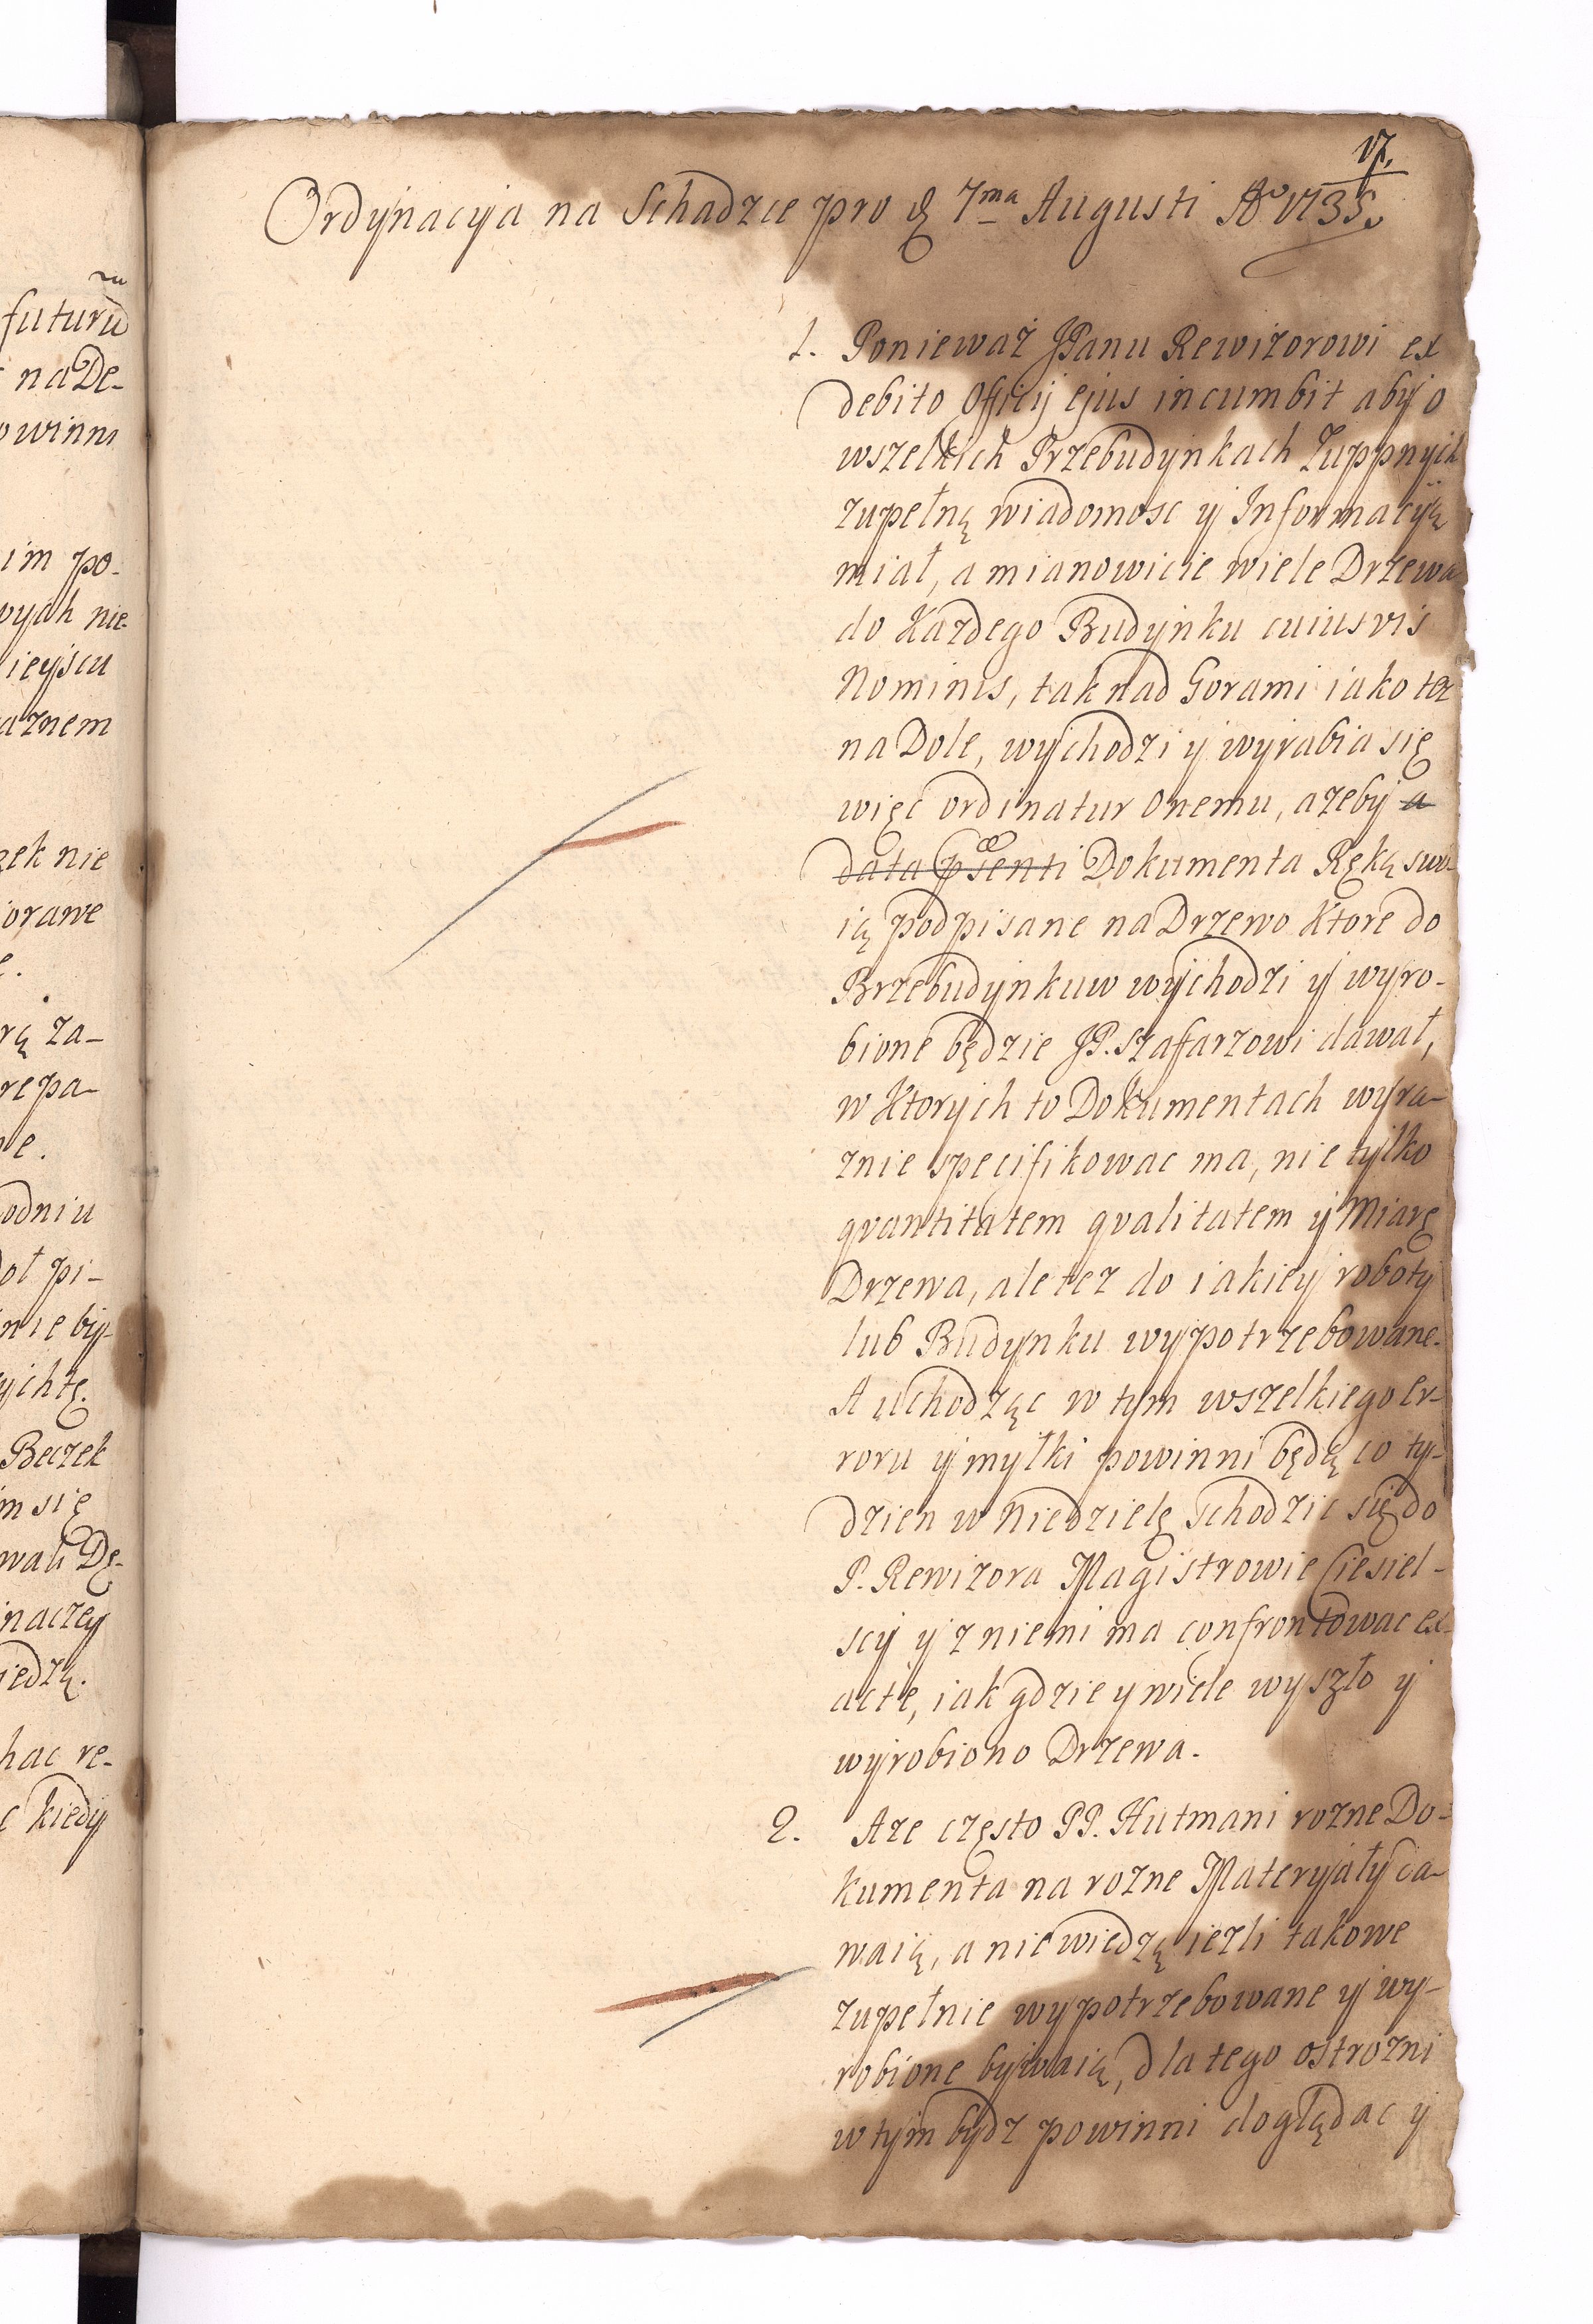 17.
Ordÿnacÿia na Schadzce pro d 7ma Augusti Ao 1735.
futurū
na De-
owinni
im po-
wych nie-
ieÿscu
aznem
zek nie
orawe
rą za-
repa-
odniu
pi-
nie bÿ-
Beczek
m się
wali Dę-
naczeÿ
iedzą.
hac re-
kiedÿ
1. Poniewaz JPanu Rewizorowi ex
debito Officij ejus incumbit abÿ o
wszelkich Przebudÿnkach Zuppnÿch
zupełną wiadomosc ÿ Informacÿią
miał, a mianowicie wiele Drzewa
do Kazdego Budÿnku cuiusvis
Nominis, tak nad Gorami iako tez
na Dole, wÿchodzi ÿ wÿrabia się
więc ordinatur Onemu, azebÿ a
data psenti Dokumenta Ręką swo-
ią podpisane na Drzewo Ktore do
Brzebudÿnkuw wÿchodzi ÿ wÿro-
bione będzie JP. Szafarzowi dawał,
w Ktorÿch to Dokumentach wÿra-
znie specifikowac ma, nie tÿlko
qvantitatem qvalitatem ÿ Miarę
Drzewa, ale tez do iakieÿ robotÿ
lub Budÿnku wÿpotrzebowane.
A uchodząc w tÿm wszelkiego er-
roru ÿ mÿłki powinni będą co tÿ-
dzien w Niedzielę Schodzic się do
P. Rewizora Magistrowie Ciesiel-
scÿ ÿ z niemi ma confrontowac ex-
acte, iak gdzie ÿ wiele wÿszło ÿ
wÿrobiono Drzewa.
2. Aze często PP. Hutmani rozne Do-
kumenta na rozne Materÿałÿ da-
waią, a nie wiedzą iezli takowe
zupełnie wÿpotrzebowane ÿ wÿ-
robione bÿwaią, dla tego ostrozni
w tÿm bÿdz powinni doglądac ÿ